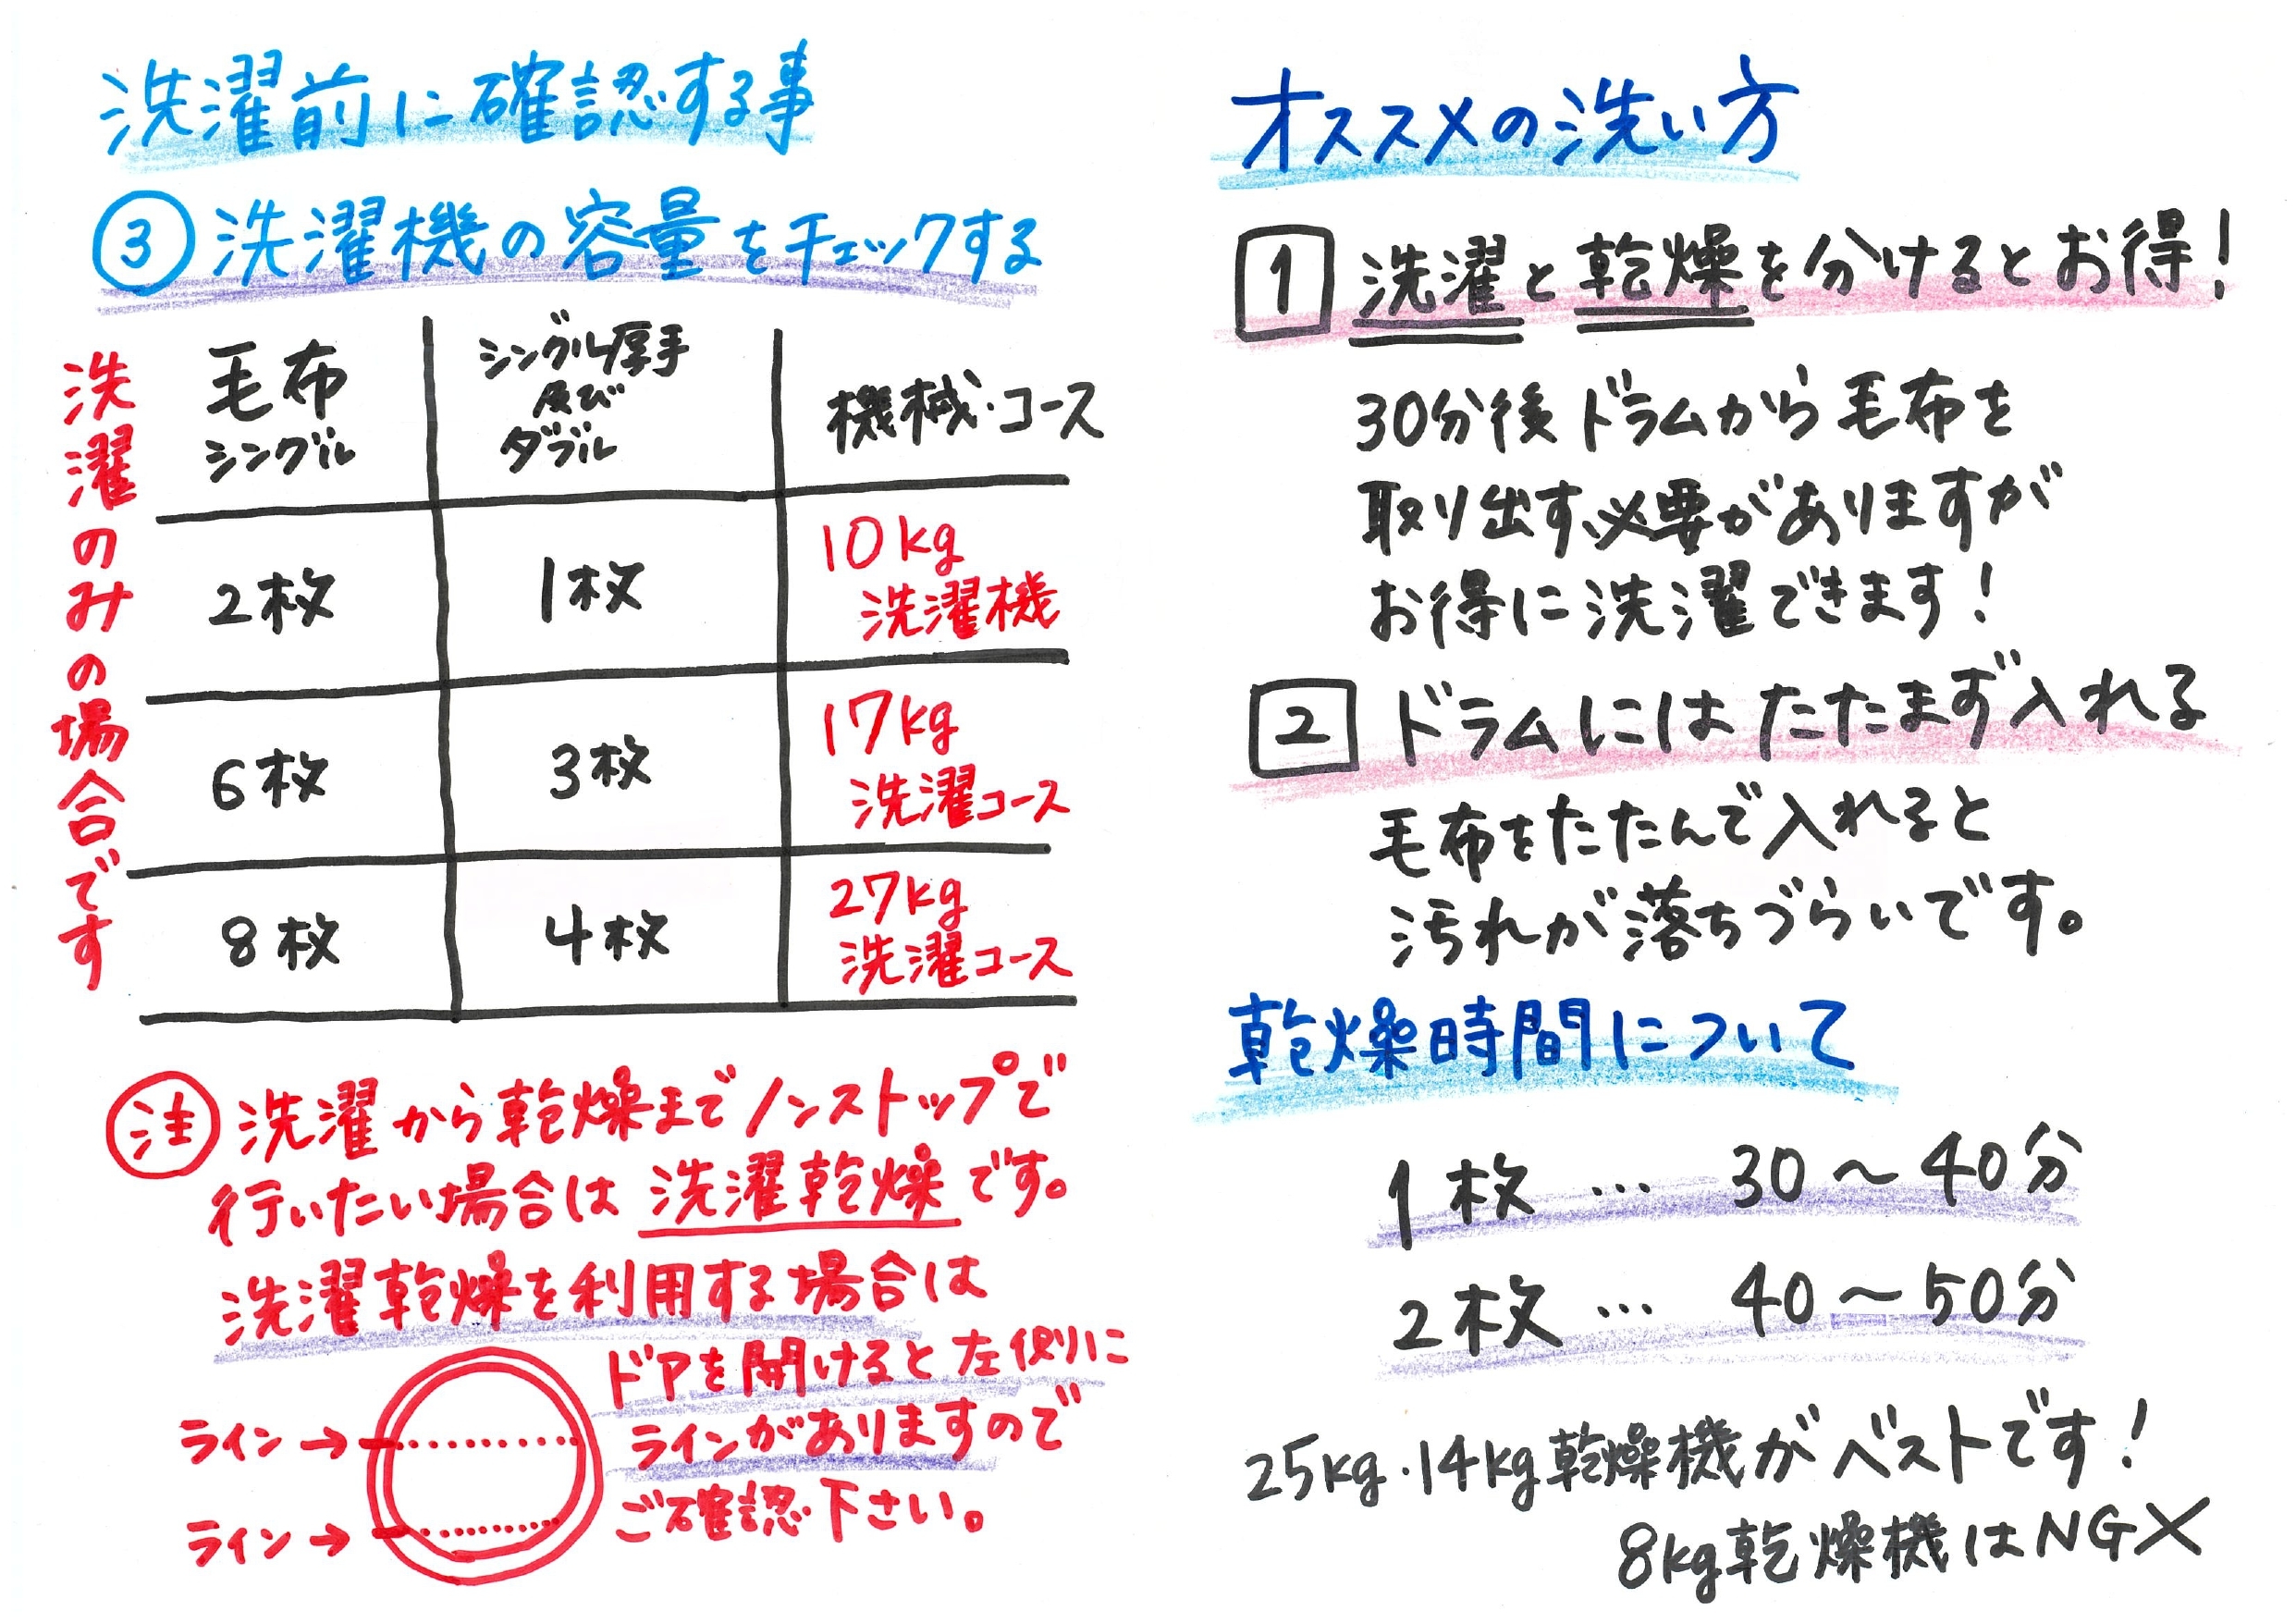 洗濯前に確認する事
③洗濯機の容量をチェックする
洗濯のみの場合です
毛布
シングル
シングル厚手
及び
ダブル
機械・コース
2枚
1枚
10kg
洗濯機
6枚
3枚
17kg
洗濯コース
8枚
4枚
27kg
洗濯コース
注 洗濯から乾燥までノンストップで
行いたい場合は洗濯乾燥です。
洗濯乾燥を利用する場合は
ドアを開けると左側に
ラインがありますので
ご確認下さい。
ライン→
ライン→
オススメの洗い方
1 洗濯と乾燥を分けるとお得!
30分後ドラムから毛布を
取り出す必要がありますが
お得に洗濯できます!
2 ドラムにはたたまず入れる
毛布をたたんで入れると
汚れが落ちづらいです。
乾燥時間について
1枚 … 30〜40分
2枚 … 40〜50分
25kg・14kg乾燥機がベストです!
8kg乾燥機はNG×